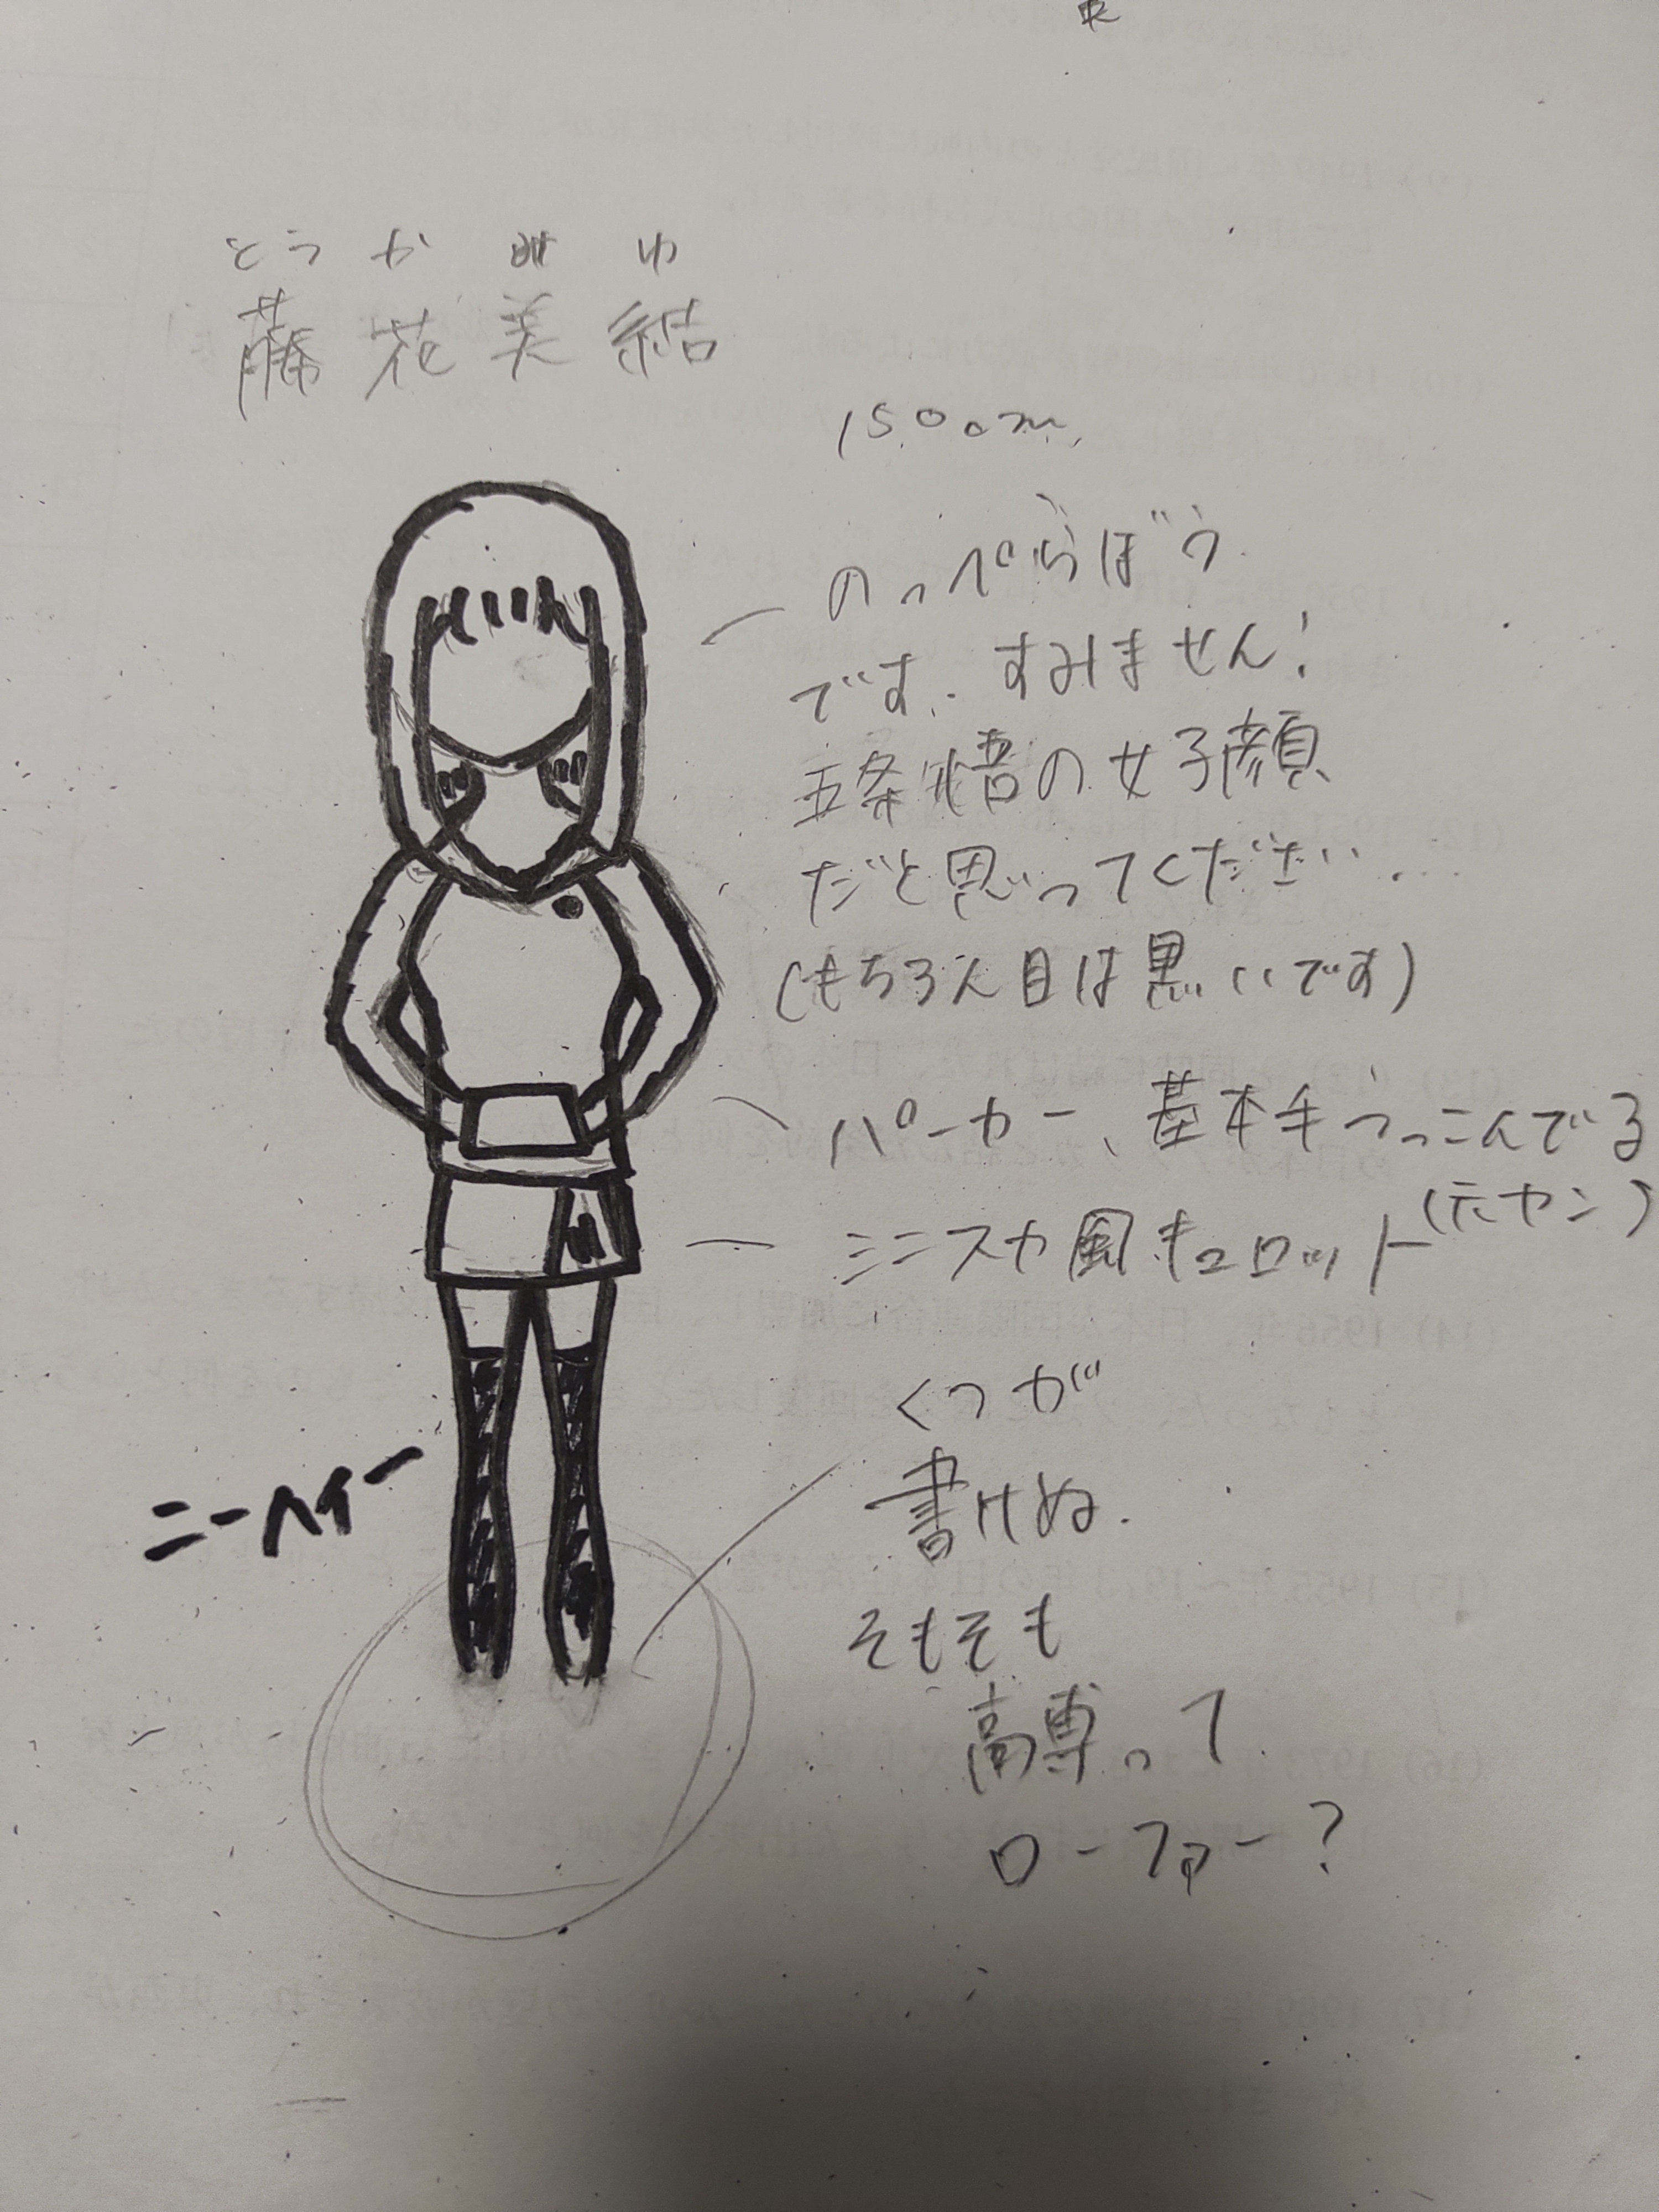 とうかみゆ
藤花美結
150cm
のっぺらぼう
です.すみません!
五条悟の女子顔
だと思ってください...
(もちろん目は黒いです)
パーカー、基本手つっこんでる
(元ヤン)
ミニスカ風キュロット
くつが
書けぬ.
ニーハイ
そもそも
高専って
ローファー?